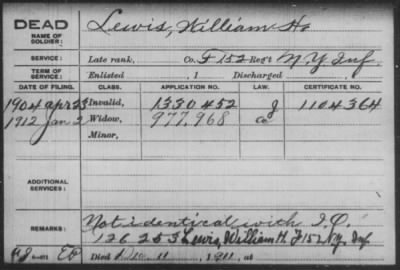 DEAD
NAME OF SOLDIER: Lewis, William H.
SERVICE: Late rank, Co. F 152 Reg't N.Y. Inf.
TERM OF SERVICE: Enlisted , 1 Discharged , 1
DATE OF FILING. CLASS. APPLICATION NO. LAW. CERTIFICATE NO.
1904 Apr 23 Invalid, 1330452 g 1104364
1912 Jan 2 Widow, 977,968
Minor,
ADDITIONAL SERVICES:
REMARKS: Not identical with I.O.
126253 Lewis, William H. F 152 N.Y. Inf.
6—471 Died Dec. 11, 1911, at